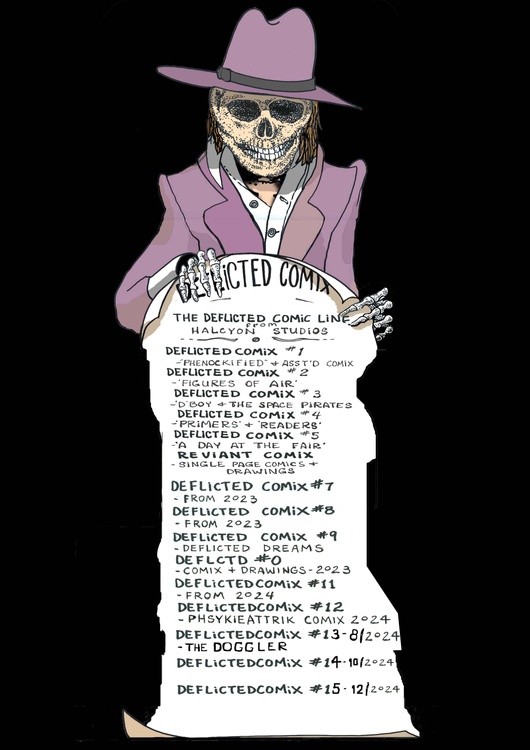 DEFLICTED COMIX
THE DEFLICTED COMIC LINE
from
HALCYON STUDIOS
DEFLICTED COMIX #1
-'PHENOCKIFIED' + ASST'D COMIX
DEFLICTED COMIX #2
-'FIGURES OF AIR'
DEFLICTED COMIX #3
-'D'BOY + THE SPACE PIRATES
DEFLICTED COMIX #4
-'PRIMERS' + 'READERS'
DEFLICTED COMIX #5
-'A DAY AT THE FAIR'
REVIANT COMIX
-SINGLE PAGE COMICS +
DRAWINGS
DEFLICTED COMIX #7
- FROM 2023
DEFLICTED COMIX #8
- FROM 2023
DEFLICTED COMIX #9
- DEFLICTED DREAMS
DEFLCTD #0
- COMIX + DRAWINGS - 2023
DEFLICTEDCOMIX #11
- FROM 2024
DEFLICTEDCOMIX #12
- PHSYKIEATTRIK COMIX 2024
DEFLICTEDCOMIX #13 - 8/2024
- THE DOGGLER
DEFLICTEDCOMIX #14 - 10/2024
DEFLICTEDCOMIX #15 - 12/2024